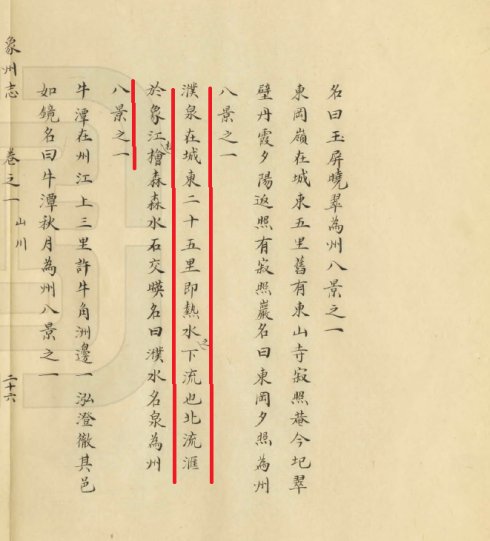 名曰玉屏曉翠為州八景之一
東岡嶺在城東五里舊有東山寺寂照菴今圮翠
壁丹霞夕陽返照有寂照巖名曰東岡夕照為州
八景之一
濮泉在城東二十五里即熱水之下流也北流滙
於象江檜森森水石交暎名曰濮水名泉為州
八景之一
牛潭在州江上三里許牛角洲邊一泓澄徹其色
如鏡名曰牛潭秋月為州八景之一
象州志 卷之一 山川 二十六